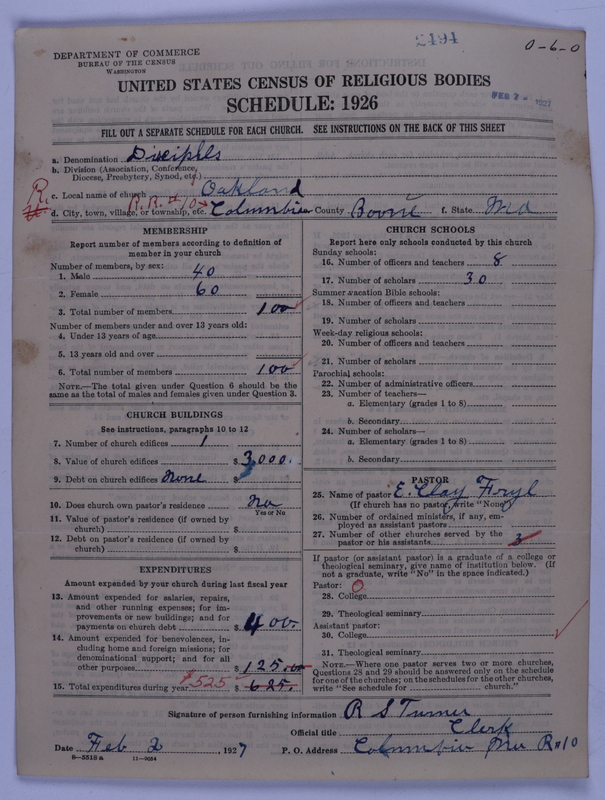 2494
0-6-0
DEPARTMENT OF COMMERCE
BUREAU OF THE CENSUS
WASHINGTON
UNITED STATES CENSUS OF RELIGIOUS BODIES
SCHEDULE: 1926
FEB 7 - 1927
FILL OUT A SEPARATE SCHEDULE FOR EACH CHURCH. SEE INSTRUCTIONS ON THE BACK OF THIS SHEET
a. Denomination Disciples
b. Division (Association, Conference, Diocese, Presbytery, Synod, etc.)
R. c. Local name of church Oakland
d. City, town, village, or township, etc. R.R. #10 Columbia County Boone f. State Mo
MEMBERSHIP
Report number of members according to definition of
member in your church
Number of members, by sex:
1. Male 40
2. Female 60
3. Total number of members 100
Number of members under and over 13 years old:
4. Under 13 years of age
5. 13 years old and over
6. Total number of members 100
NOTE.—The total given under Question 6 should be
same as the total of males and females given under Question 3.
CHURCH BUILDINGS
See instructions, paragraphs 10 to 12
7. Number of church edifices 1
8. Value of church edifices $ 3,000.
9. Debt on church edifices None $
10. Does church own pastor's residence No
Yes or No
11. Value of pastor's residence (if owned by
church) $
12. Debt on pastor's residence (if owned by
church) $
EXPENDITURES
Amount expended by your church during last fiscal year
13. Amount expended for salaries, repairs,
and other running expenses; for im-
provements or new buildings; and for
payments on church debt $ 400
14. Amount expended for benevolences, in-
cluding home and foreign missions; for
denominational support; and for all
other purposes $ 125.00
15. Total expenditures during year $525 $ 625.
CHURCH SCHOOLS
Report here only schools conducted by this church
Sunday schools:
16. Number of officers and teachers 8
17. Number of scholars 30
Summer vacation Bible schools:
18. Number of officers and teachers
19. Number of scholars
Week-day religious schools:
20. Number of officers and teachers
21. Number of scholars
Parochial schools:
22. Number of administrative officers
23. Number of teachers—
a. Elementary (grades 1 to 8)
b. Secondary
24. Number of scholars—
a. Elementary (grades 1 to 8)
b. Secondary
PASTOR
25. Name of pastor E. Clay
(If church has no pastor, write "None")
26. Number of ordained ministers, if any, em-
ployed as assistant pastors
27. Number of other churches served by the
pastor or his assistants 3
If pastor (or assistant pastor) is a graduate of a college or
theological seminary, give name of institution below. (If
not a graduate, write "No" in the space indicated.)
Pastor: O
28. College
29. Theological seminary
Assistant pastor:
30. College
31. Theological seminary
NOTE.—Where one pastor serves two or more churches,
Questions 28 and 29 should be answered only on the schedule
for one of the churches; on the schedules for the other churches,
write "See schedule for church."
Signature of person furnishing information R S Turner
Official title Clerk
Date Feb 2 1927 P. O. Address Columbia Mo R #10
8-5518 a 11-9684